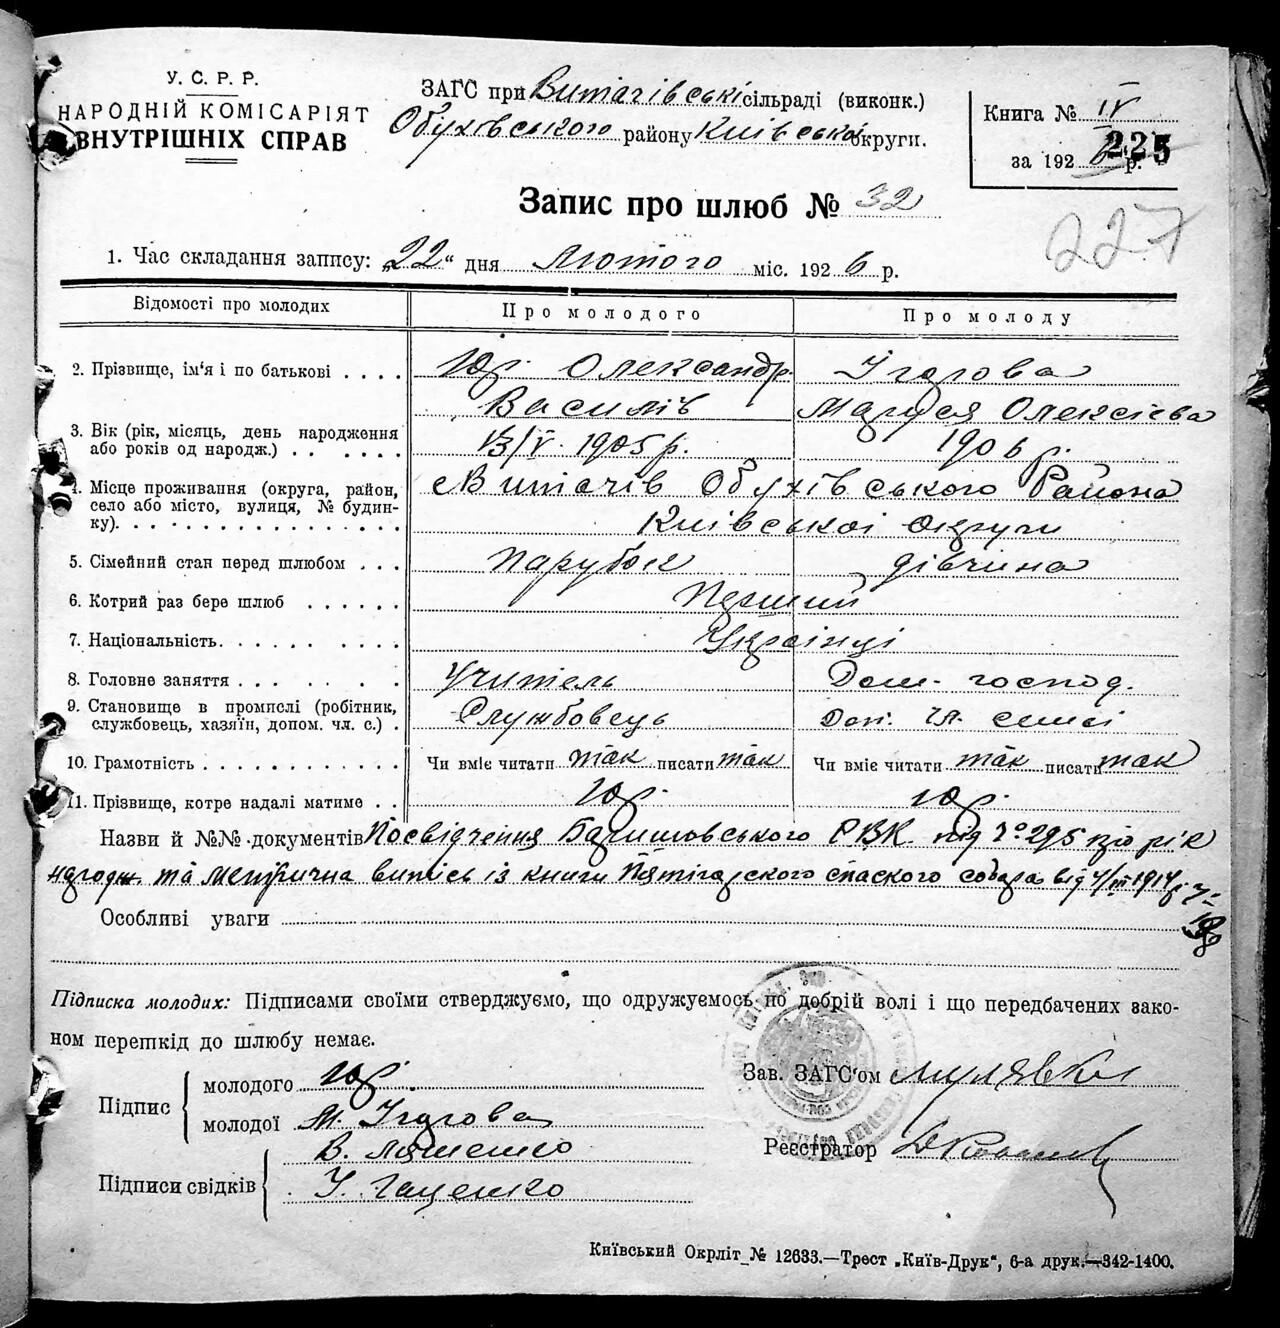 У. С. Р. Р.
НАРОДНІЙ КОМІСАРІЯТ
ВНУТРІШНІХ СПРАВ
ЗАГС при Витачівські сільраді (виконк.)
Обухівського району Київської округи.
Книга № IV
за 1926 р.
225
227
Запис про шлюб № 32
1. Час складання запису: „22“ дня лютого міс. 1926 р.
Відомості про молодих Про молодого Про молоду
2. Прізвище, ім'я і по батькові . . . . Юр. Олександр Ігорова
Василів Маруся Олексієва
3. Вік (рік, місяць, день народження 13/IV. 1905 р. 1906 р.
або років од народж.) . . . . . . .
4. Місце проживання (округа, район, с Витачів Обухівського Района
село або місто, вулиця, № будин-
ку). . . . . . . . . . . . . . . Київської Округи
5. Сімейний стан перед шлюбом . . . парубок дівчина
6. Котрий раз бере шлюб . . . . . . Перший
7. Національність. . . . . . . . . Українці
8. Головне заняття . . . . . . . . Учитель Дом. господ.
9. Становище в промислі (робітник, Службовець Доп. чл. семьі
службовець, хазяїн, допом. чл. с.) .
10. Грамотність . . . . . . . . . . . . Чи вміє читати так писати так Чи вміє читати так писати так
11. Прізвище, котре надалі матиме . . Юр. Юр.
Назви й №№ документів Посвідчення РВК. під 295 про рік
народж. та метрична випись із книги Пятігорского спаского собора від 1914 р.
Особливі уваги
Підписка молодих: Підписами своїми стверджуємо, що одружуємось по добрій волі і що передбачених зако-
ном перешкід до шлюбу немає.
Підпис молодого Юр.
молодої М. Ігорова
Підписи свідків В. Ляшенко
У. Гаценко
Зав. ЗАГС'ом Мулявка
Реєстратор
Київський Окрліт № 12633.—Трест „Київ-Друк“, 6-а друк.—342-1400.